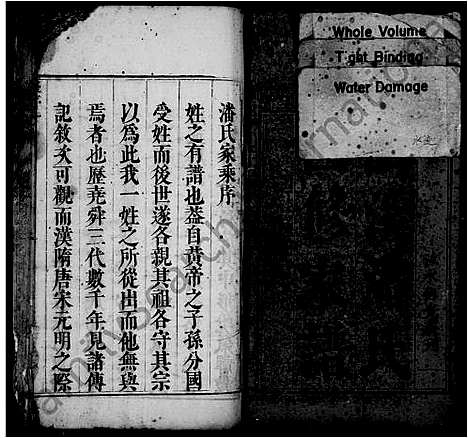 潘氏家乘序
姓之有譜也葢自黃帝之子孫分國
受姓而後世遂各親其祖各守其宗
以為此我一姓之所從出而他無與
焉者也歷堯舜三代數千年見諸傳
記敘矣可觀而漢隋唐宋元明之際
Whole Volume
Tight Binding
Water Damage